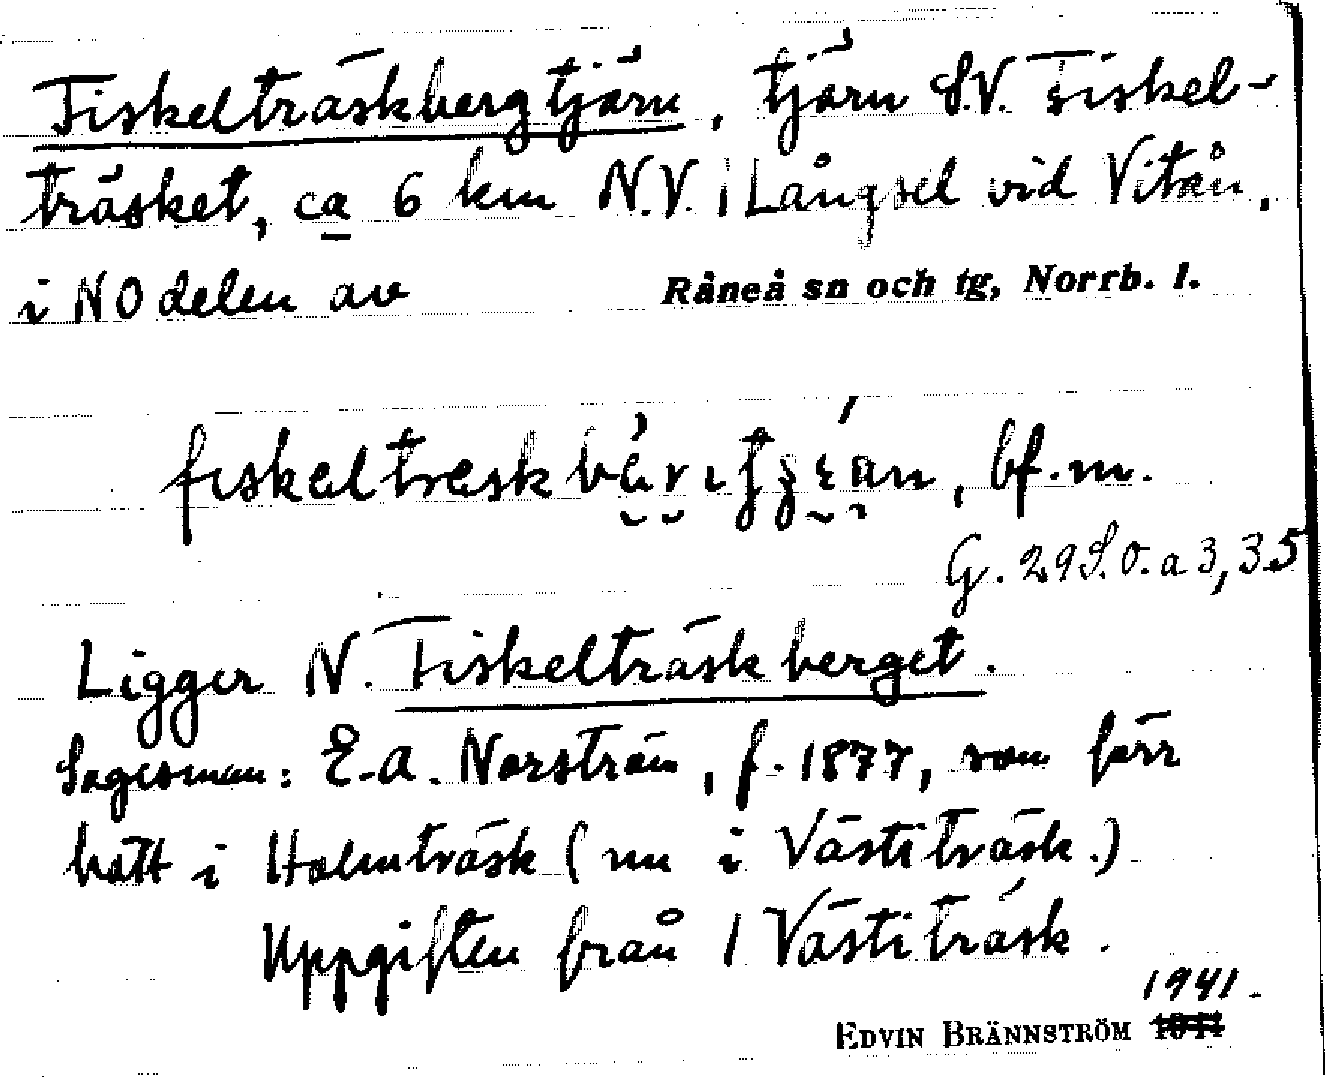 Fiskelträskbergtjärn, tjärn S.V. Fiskel-
träsket, ca 6 km N.V. 1 Långsel vid Vitån,
i NO delen av Råneå sn och tg, Norrb. l.
bf. m.
G. 29 S.O. a 3, 35
Ligger N. Fiskelträskberget.
Sagesman: E.A. Norström, f. 1877, som förr
bott i Holmträsk (nu i Västiträsk.)
Uppgiften från 1 Västiträsk.
1941.
EDVIN BRÄNNSTRÖM